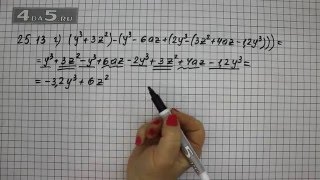 4DA5.RU
25.13 г) (y³+3z²)-(y³-6az+(2y³-(3z²+4az-12y³)))=
=y³+3z²-y³+6az-2y³+3z²+4az-12y³=
=-3,2y³+6z²